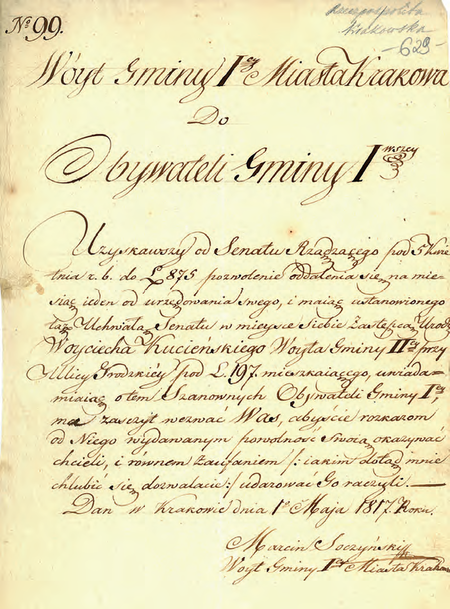 No 99.
Rzeczpospolita
Krakowska
-629-
Wóyt Gminy Iszey Miasta Krakowa
Do
Obywateli Gminy Iwszey
Uzyskawszy od Senatu Rządzącego pod 5 Kwie
tnia r. b. do L 875 pozwolenie oddalenia się na mie-
siąc ieden od urzędowania swego, i maiąc ustanowionego
tąż Uchwałą Senatu w mieysce Siebie Zastępcą Urodz.
Woyciecha Kucieńskiego Woyta Gminy IIey przy
Ulicy Grodzkiéy pod L. 197. mieszkaiącego, uwiada-
miaiąc o tem Szanownych Obywateli Gminy Iey
ma zaszczyt wezwać Was, abyście rozkazom
od Niego wydawanym powolność Swoią okazywać
chcieli, i równem Zaufaniem /: iakim dotąd mnie
chlubić się dozwalacie :/ udarować Go raczyli. —
Dan w Krakowie dnia 1o Maja 1817. Roku.
Marcin Soczyński
Woyt Gminy Iey Miasta Krakowa